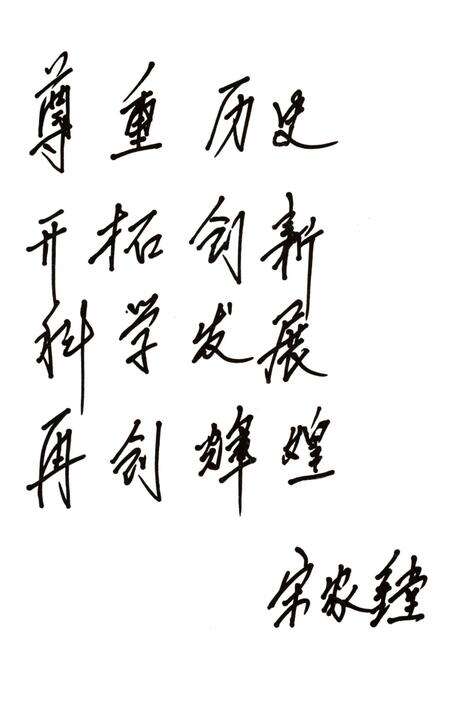 尊重历史
开拓创新
科学发展
再创辉煌
宋家镗